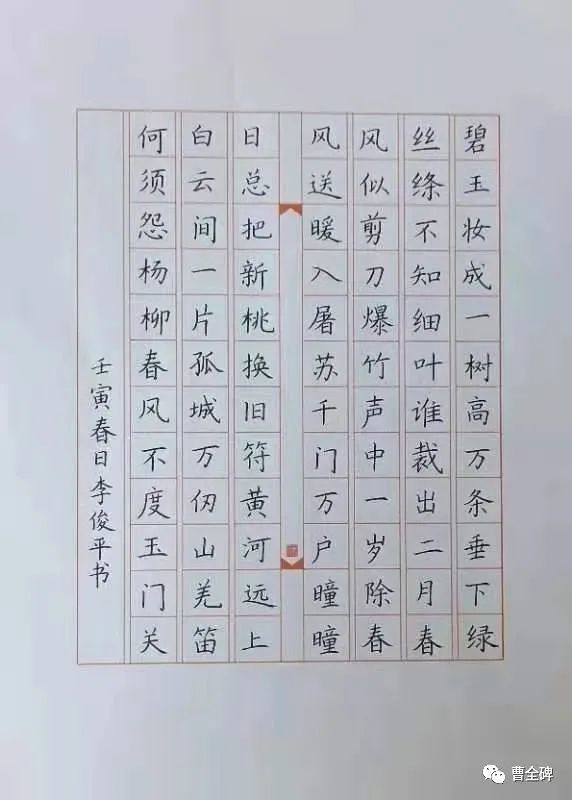 碧玉妆成一树高万条垂下绿
丝绦不知细叶谁裁出二月春
风似剪刀爆竹声中一岁除春
风送暖入屠苏千门万户曈曈
日总把新桃换旧符黄河远上
白云间一片孤城万仞山羌笛
何须怨杨柳春风不度玉门关
壬寅春日李俊平书
曹全碑